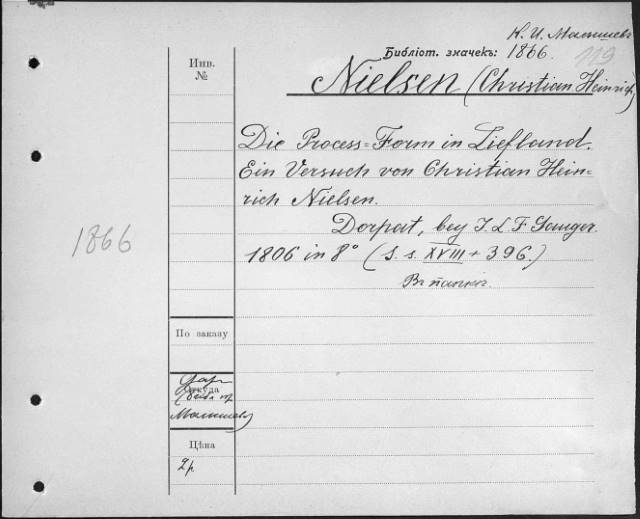 К. И. Малышевъ
Библіот. значекъ: 1866.
119
Инв.
№
Nielsen (Christian Heinrich)
Die Process=Form in Liefland.
Ein Versuch von Christian Hein=
rich Nielsen.
Dorpat, bey J. L. F. Gauger.
1806 in 8° (S. s. XVIII + 396.)
Въ папкѣ.
1866
По заказу
Откуда
Малышева)
Цѣна
2 р